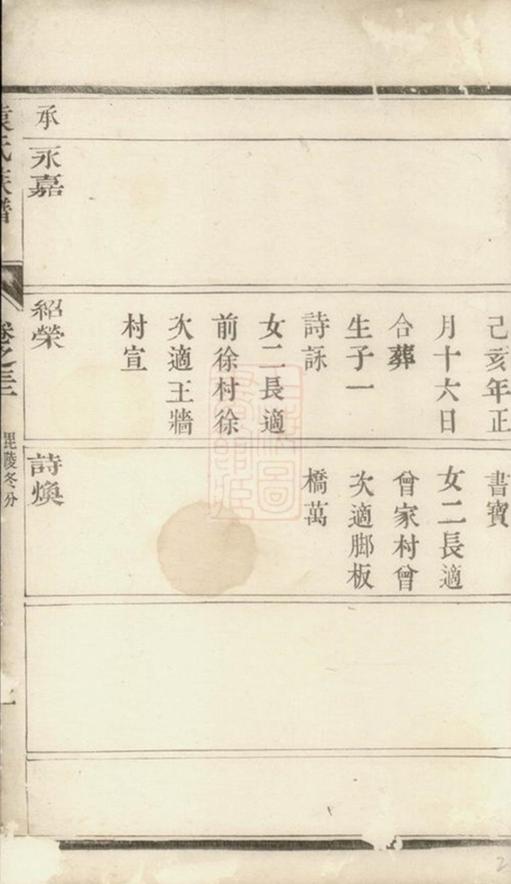 承
永嘉
己亥年正
月十六日
合葬
生子一
詩詠
女二長適
前徐村徐
次適王牆
村宣
紹榮
書寶
女二長適
曾家村曾
次適脚板
橋萬
詩煥
袁氏族譜
卷之三
毘陵冬分
一
2